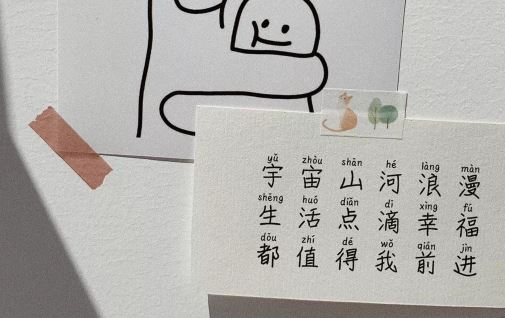 yǔ zhòu shān hé làng màn
宇宙山河浪漫
shēng huó diǎn dī xìng fú
生活点滴幸福
dōu zhí dé wǒ qián jìn
都值得我前进